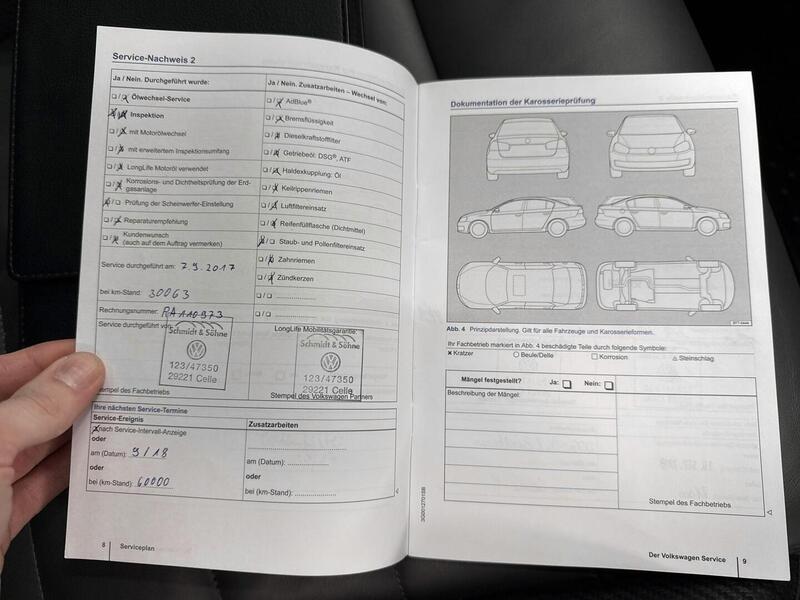 Service-Nachweis 2
Ja / Nein. Durchgeführt wurde:
Ölwechsel-Service
Inspektion
mit Motorölwechsel
mit erweitertem Inspektionsumfang
LongLife Motoröl verwendet
Korrosions- und Dichtheitsprüfung der Erd-
gasanlage
Prüfung der Scheinwerfer-Einstellung
Reparaturempfehlung
Kundenwunsch
(auch auf dem Auftrag vermerken)
Service durchgeführt am: 7.9.2017
bei km-Stand: 30063
Rechnungsnummer: RA110973
Ja / Nein. Zusatzarbeiten – Wechsel von:
AdBlue®
Bremsflüssigkeit
Dieselkraftstofffilter
Getriebeöl: DSG®, ATF
Haldexkupplung: Öl
Keilrippenriemen
Luftfiltereinsatz
Reifenfüllflasche (Dichtmittel)
Staub- und Pollenfiltereinsatz
Zahnriemen
Zündkerzen
Service durchgeführt von:
Schmidt & Söhne
123/47350
29221 Celle
Stempel des Fachbetriebs
LongLife Mobilitätsgarantie:
Schmidt & Söhne
123/47350
29221 Celle
Stempel des Volkswagen Partners
Ihre nächsten Service-Termine
Service-Ereignis
nach Service-Intervall-Anzeige
oder
am (Datum): 9/18
oder
bei (km-Stand): 60000
Zusatzarbeiten
am (Datum):
oder
bei (km-Stand):
8 Serviceplan
Dokumentation der Karosserieprüfung
Abb. 4 Prinzipdarstellung. Gilt für alle Fahrzeuge und Karosserieformen.
Ihr Fachbetrieb markiert in Abb. 4 beschädigte Teile durch folgende Symbole:
Kratzer Beule/Delle Korrosion Steinschlag
Mängel festgestellt? Ja: Nein:
Beschreibung der Mängel:
Stempel des Fachbetriebs
Der Volkswagen Service 9